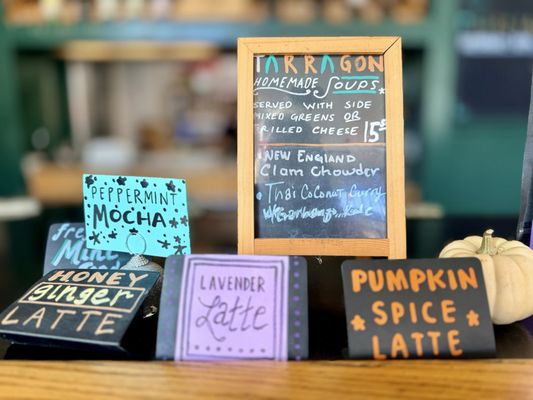 TARRAGON
HOMEMADE SOUPS
SERVED WITH SIDE
MIXED GREENS OR
GRILLED CHEESE 15
NEW ENGLAND
Clam Chowder
Thai Coconut Curry
w/Garbanzo, Kale
PEPPERMINT
MOCHA
fresh
Mint
HONEY
Ginger
LATTE
LAVENDER
Latte
PUMPKIN
SPICE
LATTE